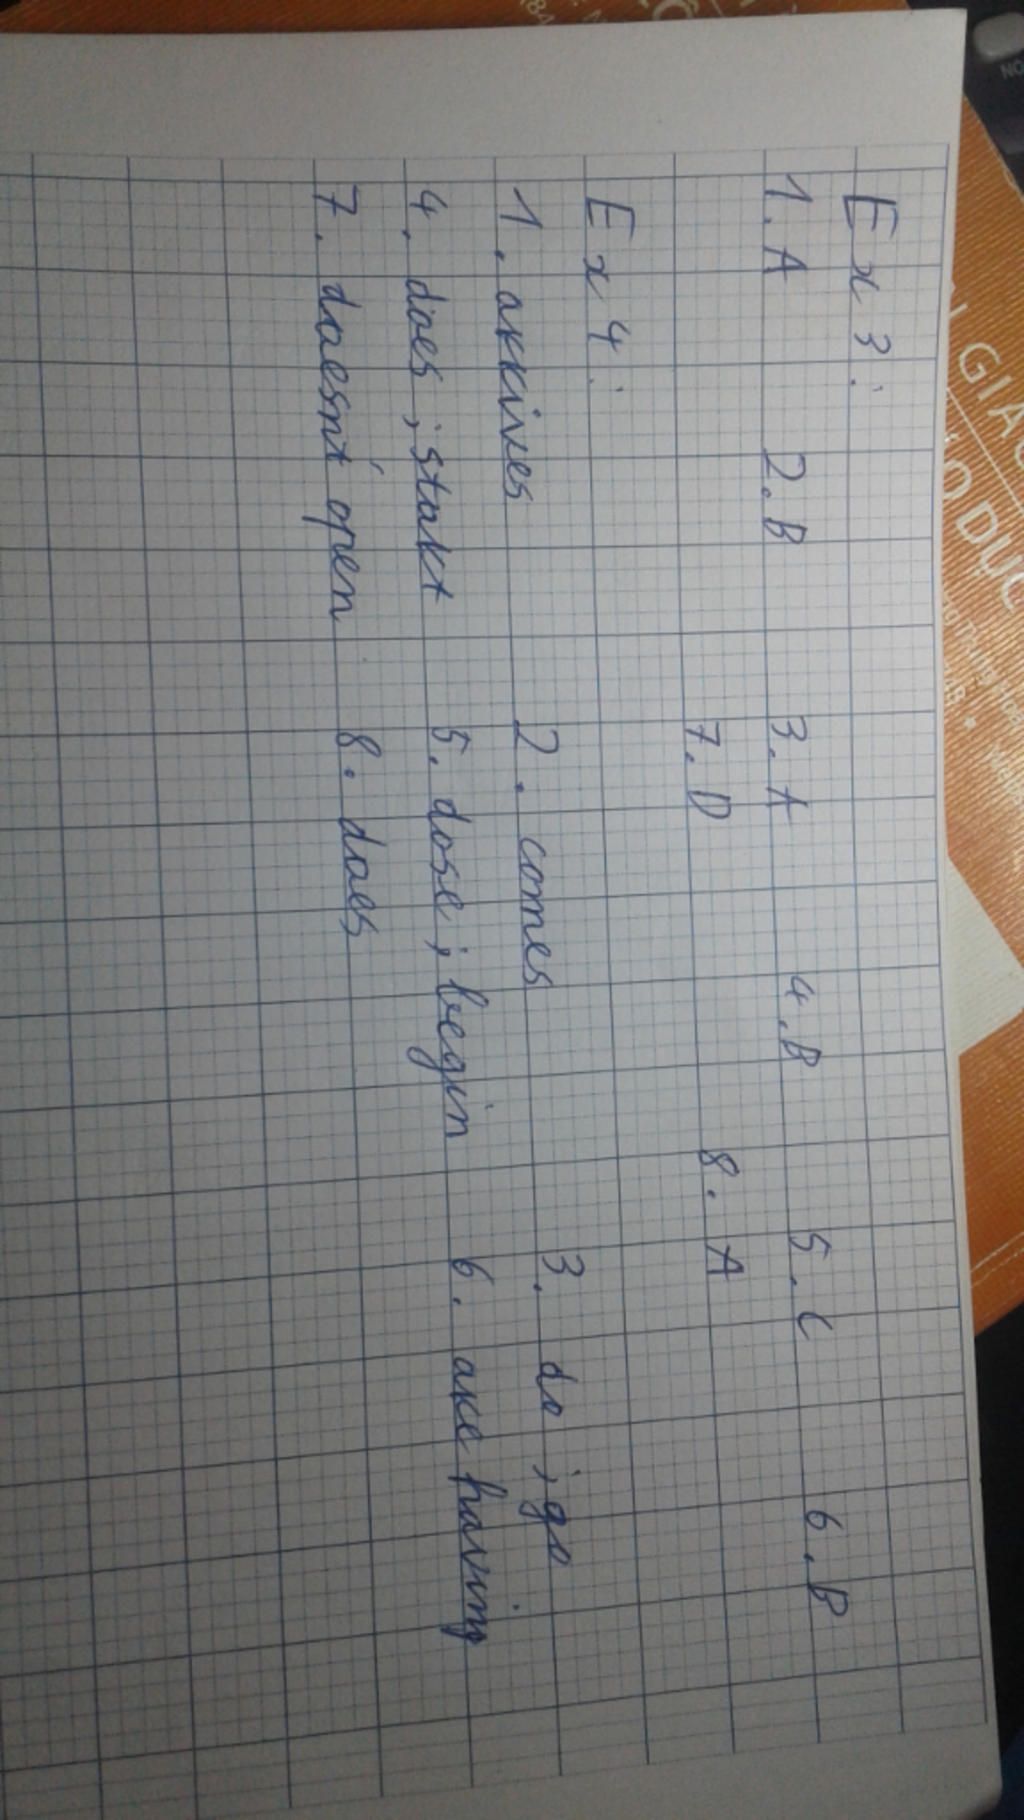 Ex 3:
1. A 2. B 3. A 4. B 5. C 6. B
7. D 8. A
Ex 4:
1. arrives 2. comes 3. do ; go
4. does ; start 5. dose ; begin 6. are having
7. doesn't open 8. does
GIÁO
DỤC
NO